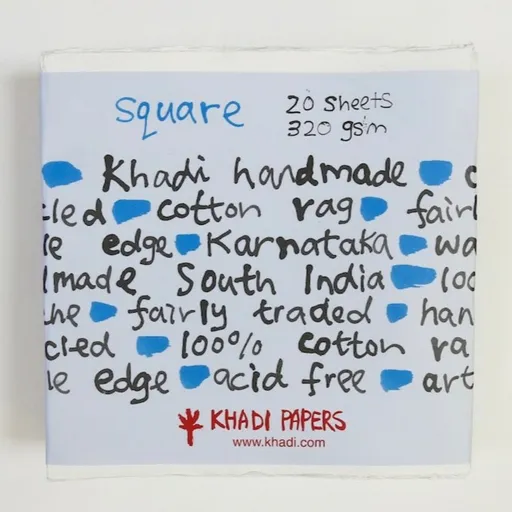 square
20 sheets
320 gsm
Khadi handmade c
cled cotton rag fairl
e edge Karnataka wa
made South India 100
he fairly traded han
cled 100% cotton ra
e edge acid free art
KHADI PAPERS
www.khadi.com